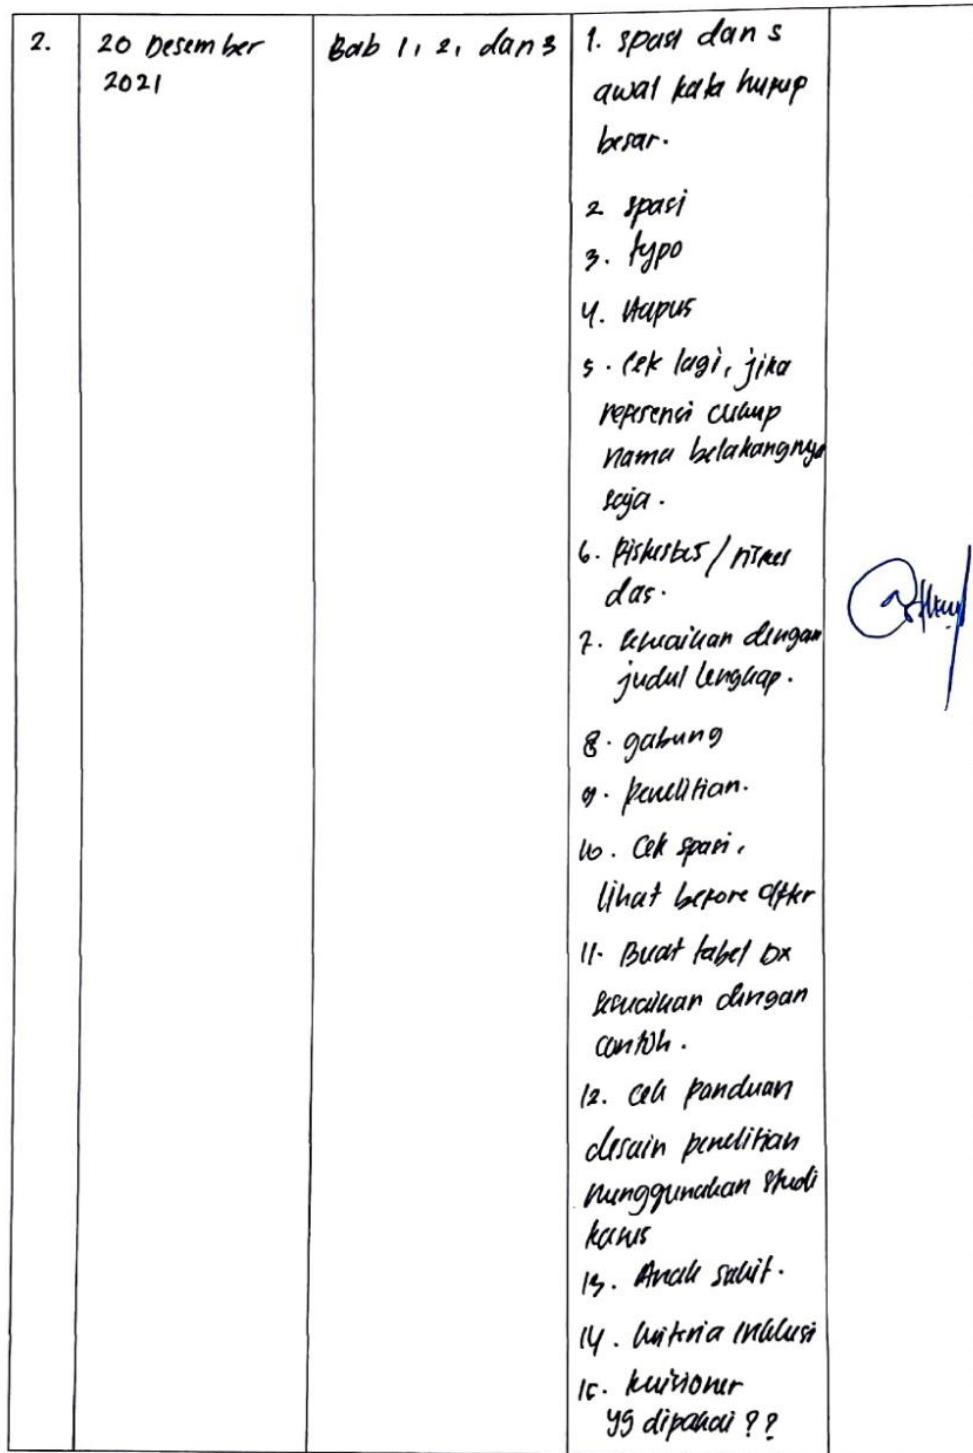 2.
20 Desember
2021
Bab 1, 2, dan 3
1. spasi dan s
awal kata hurup
besar.
2 spasi
3. typo
4. Hapus
5. Cek lagi, jika
referensi cukup
nama belakangnya
saja.
6. Riskesdes / riskes
das.
7. sesuaikan dengan
judul lengkap.
8. gabung
9. penelitian.
10. Cek spasi,
lihat before after
11. Buat tabel Dx
sesuaikan dengan
contoh.
12. cek panduan
desain penelitian
menggunakan studi
kasus
13. Anak sakit.
14. kriteria inklusi
15. kuisioner
yg dipakai ??